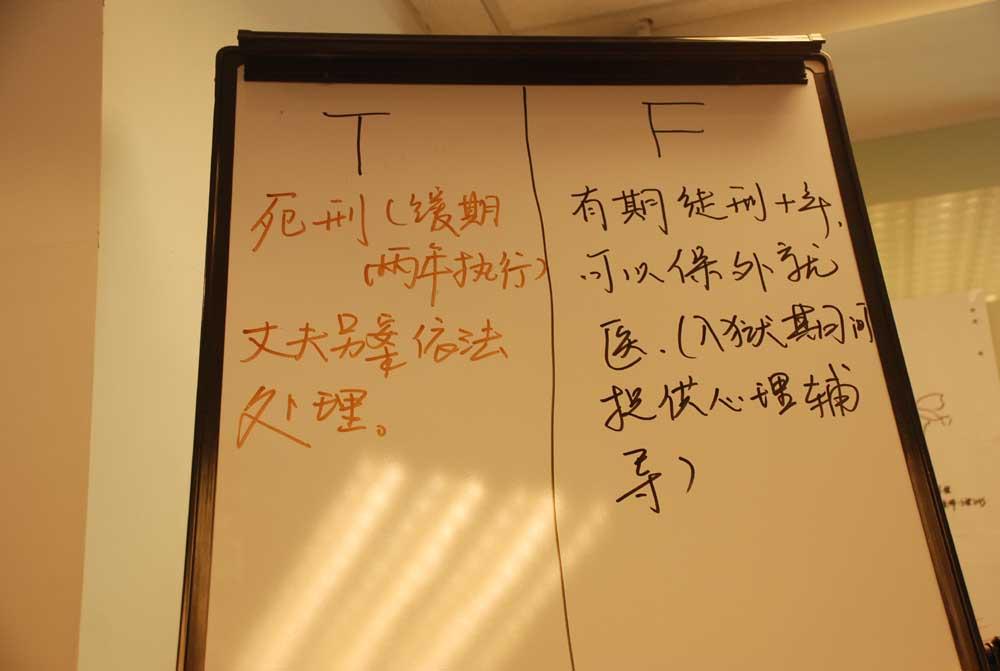 T
死刑(缓期
(两年执行)
丈夫另案依法
处理。
F
有期徒刑十年,
可以保外就
医.(入狱期间
提供心理辅
导)